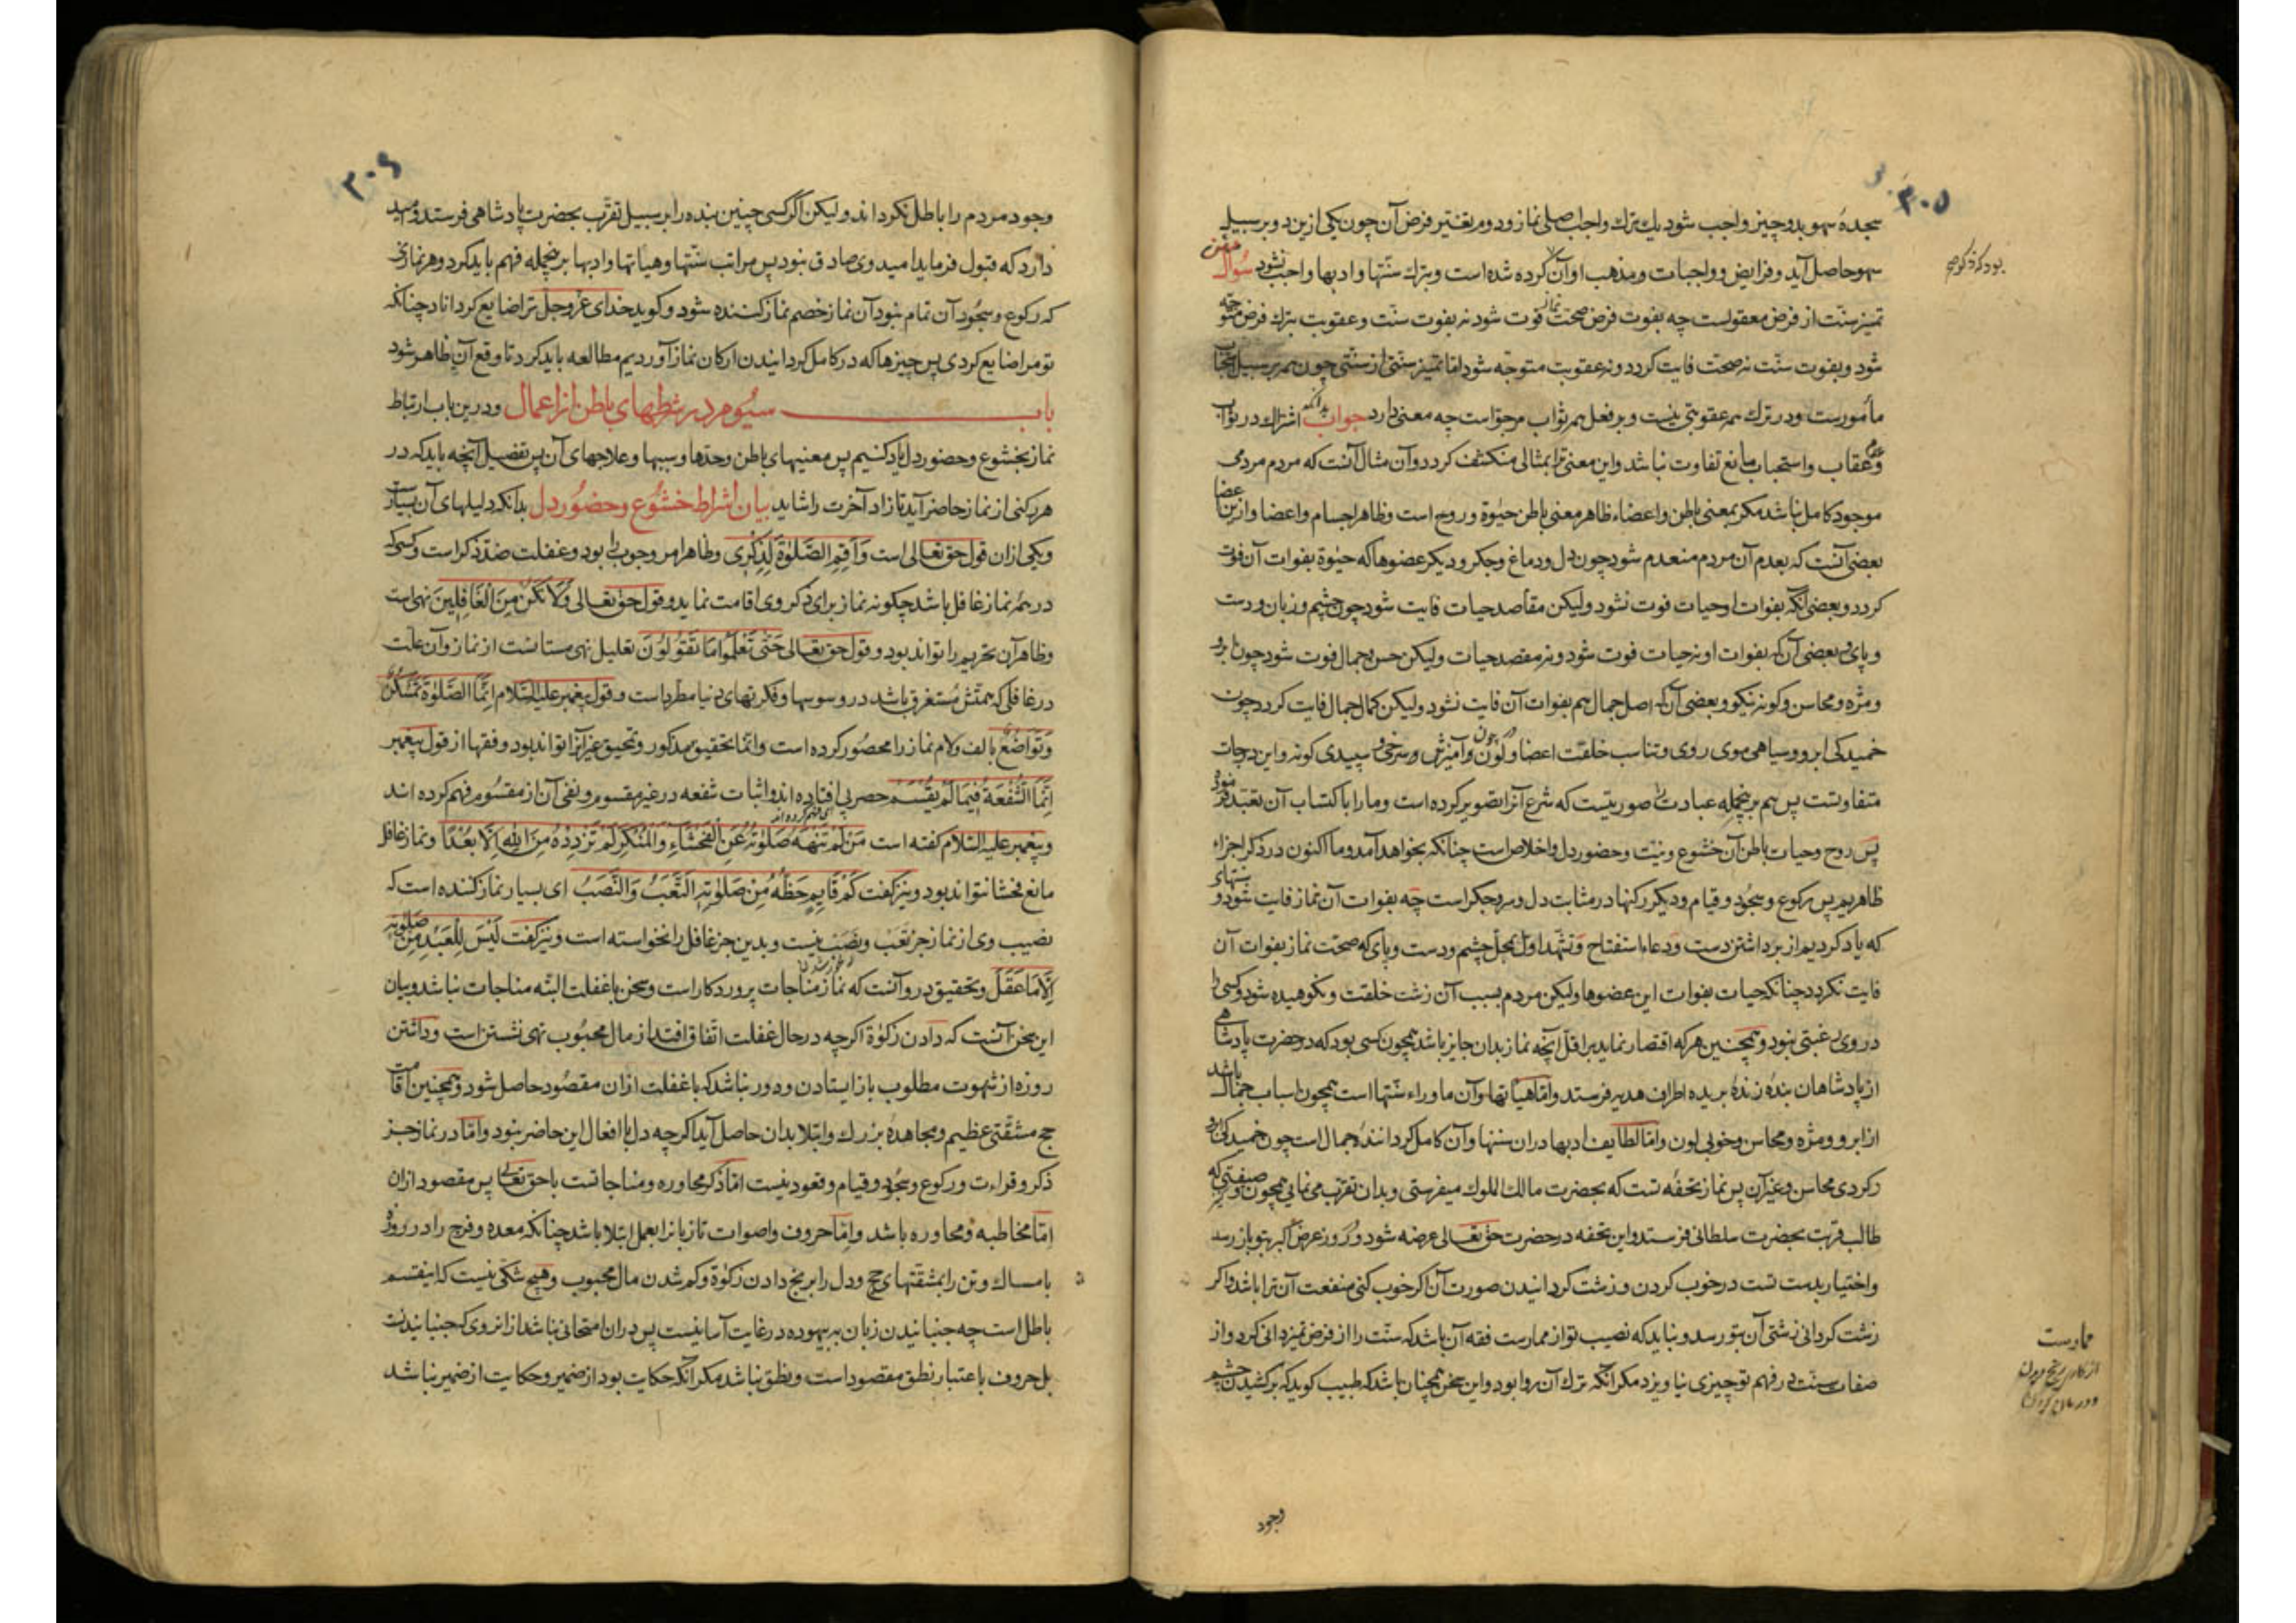 ۳۰۵
سجدهٔ سهو بدو چیز واجب شود یك ترك واجب اصلی نماز و دوم تغییر فرض آن چون یکی ازین دو بر سبیل
سهو حاصل آید و فرایض و واجبات و مذهب او آن کرده شده است و بترك سنتها و ادبها واجب نشود سؤال
تمیز سنت از فرض معقولست چه بفوت فرض صحت نماز فوت شود نه بفوت سنت و عقوبت بترك فرض متوجه
شود و بفوت سنت نه صحت فایت کردد و نه عقوبت متوجه شود اما تمیز سنتی از سنتی چون همه بر سبیل استحباب
مأمورست و در ترك همه عقوبتی نیست و بر فعل همه ثواب مرجواست چه معنی دارد جواب بدانکه اشتراك در ثواب
و عدم عقاب و استحباب مانع تفاوت نباشد و این معنی ترا بمثالی منکشف کردد و آن مثال آنست که مردم مردمی
موجود کامل نباشد مکر بمعنی باطن و اعضاء ظاهر معنی باطن حیوة و روح است و ظاهر اجسام و اعضا و ازین اعضا
بعضی آنست که بعدم آن مردم منعدم شود چون دل و دماغ و جکر و دیکر عضوها که حیوة بفوات آن فوت
کردد و بعضی آنکه بفوات او حیات فوت نشود ولیکن مقاصد حیات فایت شود چون چشم و زبان و دست
و پای و بعضی آن که بفوات او نه حیات فوت شود و نه مقصد حیات ولیکن حسن و جمال فوت شود چون ابرو
و مژه و محاسن و کونه نیکو و بعضی آن که اصل جمال هم بفوات آن فایت نشود ولیکن کمال جمال فایت کردد چون
خمیدکی ابرو و سیاهی موی روی و تناسب خلقت اعضا و لون و آمیزش سرخی و سپیدی کونه و این درجات
متفاوتست پس هم برینجمله عبادت را صورتیست که شرع آنرا تصویر کرده است و ما را باکتساب آن تعبد فرموده
پس روح و حیات باطن آن خشوع و نیت و حضور دل و اخلاص است چنانکه بخواهد آمد و ما اکنون در ذکر اجزاء
ظاهریم پس رکوع و سجود و قیام و دیکر رکنها در مثابت دل و سر و جکر است چه بفوات آن نماز فایت شود و سنتهای
که یاد کردیم از برداشتن دست و دعاء استفتاح و تشهد اول بمحل چشم و دست و پای که صحت نماز بفوات آن
فایت نکردد چنانکه حیات بفوات این عضوها ولیکن مردم بسبب آن زشت خلقت و نکوهیده شود و کسی را
در وی رغبتی نبود و همچنین هر که اقتصار نماید بر اقل آنچه نماز بدان جایز باشد همچون کسی بود که در حضرت پادشاهی
از پادشاهان بندهٔ زندهٔ بریده اطراف هدیه فرستد و اما هیأتها و آن ماوراء سنتها است همچون اسباب جمال باشد
از ابرو و مژه و محاسن و خوبی لون و اما لطایف ادبها دران سنتها و آن کامل کردانندهٔ جمال است چون خمیدکی ابرو
و کردی محاسن و غیر آن پس نماز تحفه تست که بحضرت مالك الملوك میفرستی و بدان تقرب می نمایی همچون صیفتی که
طالب قربت بحضرت سلطانی فرستد و این تحفه در حضرت حق تعالی عرضه شود و روز عرض اکبر بتو باز رسد
و اختیار بدست تست در خوب کردن و زشت کردانیدن صورت آن اکر خوب کنی منفعت آن ترا باشد و اکر
زشت کردانی زشتی آن بتو رسد و نباید که نصیب تو از ممارست فقه آن باشد که سنت را از فرض تمیز دانی کرد و از
صفات سنت در فهم تو چیزی نیاویزد مکر آنکه ترك آن روا بود و این سخن همچنان باشد که طبیب کوید که برکشیدن چشم
ممارست
وجود
۳۰۶
وجود مردم را باطل نکرداند ولیکن اکر کسی چنین بنده را بر سبیل تقرب بحضرت پادشاهی فرستد و امید
دارد که قبول فرماید امید وی صادق نبود پس مراتب سنتها و هیأتها و ادبها برینجمله فهم باید کرد و هر نمازی
که رکوع و سجود آن تمام نبود آن نماز خصم نماز کننده شود و کوید خدای عز وجل ترا ضایع کرداناد چنانکه
تو مرا ضایع کردی پس چیزها که در کامل کردانیدن ارکان نماز آوردیم مطالعه باید کرد تا وقع آن ظاهر شود
باب سیوم در شرطهای باطن از اعمال و درین باب ارتباط
نماز بخشوع و حضور دل یاد کنیم پس معنیهای باطن و حدها و سببها و علاجهای آن پس تفصیل آنچه باید که در
هر رکنی از نماز حاضر آید تا زاد آخرت را شاید بیان اشراط خشوع و حضور دل بدانکه دلیلهای آن بسیار
و یکی ازان قول حق تعالی است وَأَقِمِ الصَّلٰوةَ لِذِكْرِي و ظاهر امر وجوب را بود و غفلت ضد ذکر است و کسی که
در همه نماز غافل باشد چکونه نماز برای ذکر وی اقامت نماید و قول حق تعالی وَلَا تَكُنْ مِنَ الْغَافِلِينَ نهی است
و ظاهر آن تحریم را تواند بود و قول حق تعالی حَتَّى تَعْلَمُوا مَا تَقُولُونَ تعلیل نهی مستانست از نماز و آن علت
در غافل که همتش مستغرق باشد در وسوسها و فکرتهای دنیا مطرد است و قول پیغمبر علیه السلام اِنَّمَا الصَّلٰوةُ تَمَسْكُنٌ
وَتَوَاضُعٌ بالف و لام نماز را محصور کرده است و انما تحقیق مذکور و تمحیق غیر آنرا تواند بود و فقها از قول پیغمبر
اِنَّمَا الشُّفْعَةُ فِيمَا لَمْ يُقْسَمْ حصر پی افتاده اند و اثبات شفعه در غیر مقسوم و نفی آن از مقسوم فهم کرده اند
و پیغمبر علیه السلام کفته است مَنْ لَمْ تَنْهَهُ صَلٰوتُهُ عَنِ الْفَحْشَاءِ وَالْمُنْكَرِ لَمْ تَزِدْهُ مِنَ اللهِ اِلَّا بُعْدًا و نماز غافل
مانع فحشا نتواند بود و نیز کفت كَمْ قَايِمٍ حَظُّهُ مِنْ صَلٰوتِهِ التَّعَبُ وَالنَّصَبُ ای بسیار نماز کننده است که
نصیب وی از نماز جز تعب و نصب نیست و بدین جز غافل را نخواسته است و نیز کفت لَيْسَ لِلْعَبْدِ مِنْ صَلٰوتِهِ
اِلَّا مَا عَقَلَ و تحقیق درو آنست که نماز مناجات پروردکار است و سخن باغفلت البته مناجات نباشد و بیان
این سخن آنست که دادن زکوة اکرچه در حال غفلت اتفاق افتد از مال محبوب تهی نشستن است و داشتن
روزه از شهوت مطلوب باز ایستادن و دور نباشد که باغفلت ازان مقصود حاصل شود و همچنین اقامت
حج مشقتی عظیم و مجاهدهٔ بزرك و ابتلا بدان حاصل آید اکرچه دل با افعال این حاضر نبود و اما در نماز جز
ذکر و قراءت و رکوع و سجود و قیام و قعود نیست اما ذکر محاوره و مناجاتست باحق تعالی پس مقصود ازان
اما مخاطبه و محاوره باشد و اما حروف و اصوات تا زبانرا بعمل ابتلا باشد چنانکه معده و فرج را در روزه
بامساك و تن را بمشقتهای حج و دل را برنج دادن زکوة و کم شدن مال محبوب و هیچ شکی نیست که اینقسم
باطل است چه جنبانیدن زبان به بیهوده در غایت آسانیست پس دران امتحانی نباشد ازانروی که جنبانیدنست
بل حروف باعتبار نطق مقصود است و نطق نباشد مکر آنکه حکایت بود از ضمیر و حکایت از ضمیر نباشد